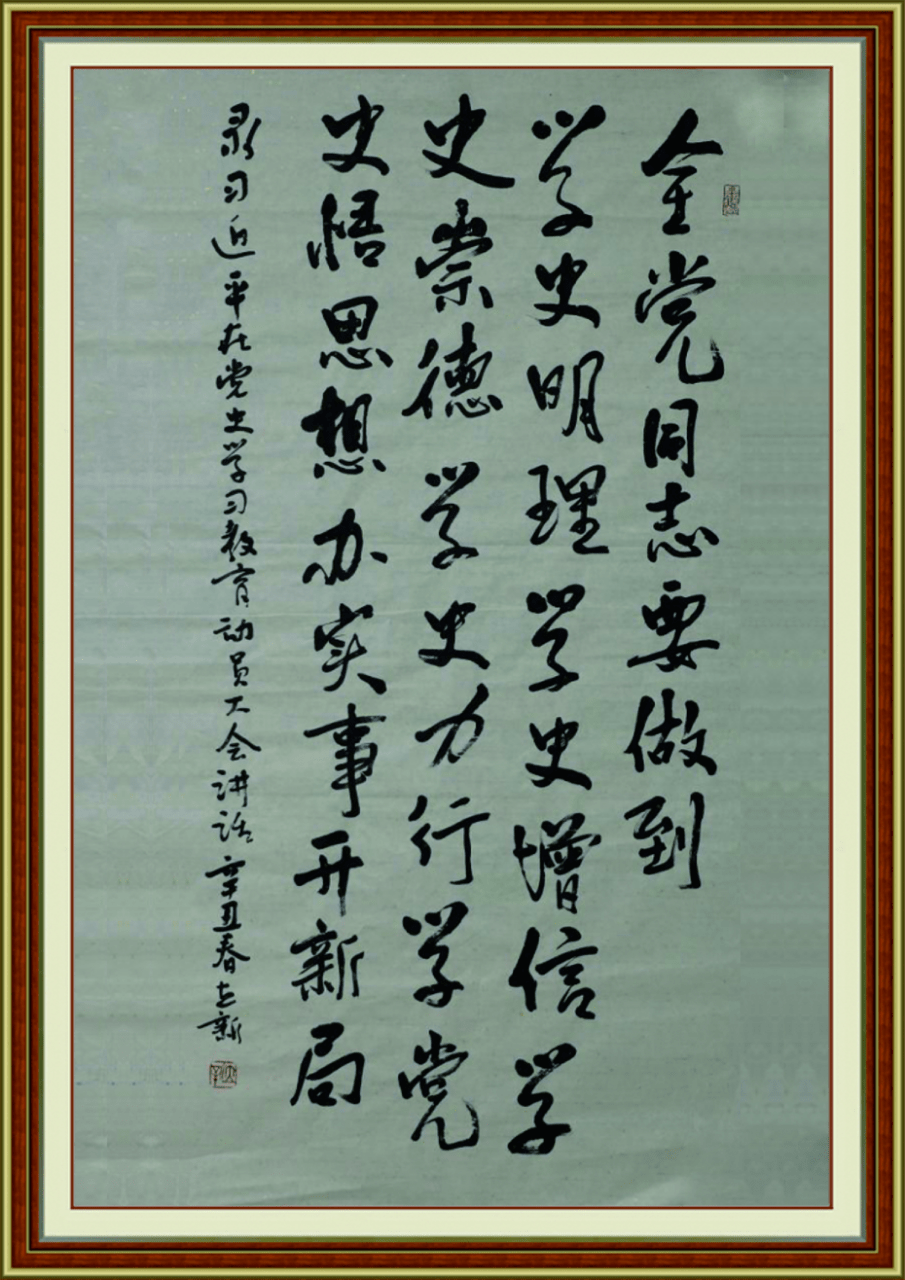 全党同志要做到
学史明理学史增信学
史崇德学史力行学党
史悟思想办实事开新局
录习近平在党史学习教育动员大会讲话辛丑春志新